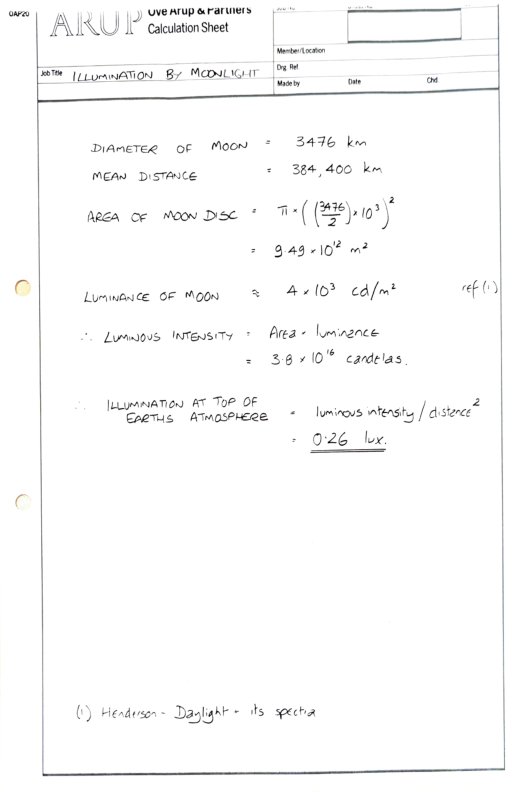 OAP20
ARUP
Ove Arup & Partners
Calculation Sheet
Member/Location
Job Title ILLUMINATION BY MOONLIGHT
Drg. Ref
Made by Date Chd
DIAMETER OF MOON = 3476 km
MEAN DISTANCE = 384,400 km
AREA OF MOON DISC = π × ((3476/2) × 10³)²
= 9.49 × 10¹² m²
LUMINANCE OF MOON ≈ 4 × 10³ cd/m² ref (1)
∴ LUMINOUS INTENSITY = Area × luminance
= 3.8 × 10¹⁶ candelas.
∴ ILLUMINATION AT TOP OF
EARTHS ATMOSPHERE = luminous intensity / distance²
= 0.26 lux.
(1) Henderson - Daylight + its spectra